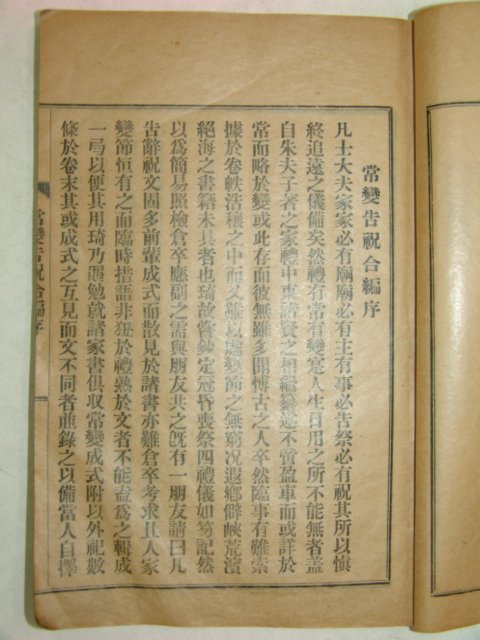 常變告祝合編序
凡士大夫家家必有廟廟必有主有事必告祭必有祝其所以愼
終追遠之儀備矣然禮有常有變寔人生日用之所不能無者盖
自朱夫子著之家禮中東諸賢之相繼纂述不啻盈車而或詳於
常而略於變或此存而彼無雖多聞博古之人卒然臨事有難索
據於卷帙浩穰之中而又難以處變節之無窮况遐鄕僻峽荒濱
絕海之書籍未具者也琦故嘗鈔定冠昏喪祭四禮儀如笏記然
以爲簡易照檢倉卒應副之需與朋友共之旣有一朋友請曰凡
告辭祝文固多前輩成式而散見於諸書亦難倉卒考求且人家
變節恒有之而臨時措語非狃於禮熟於文者不能盍爲之輯成
一弓以便其用琦乃黽勉就諸家書俱収常變成式附以外祀數
條於卷末其或成式之互見而文不同者並錄之以備當人自擇
常變告祝合編序